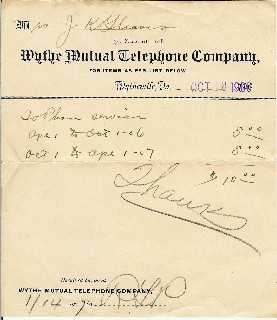 Mr J. K. Gleaves
In Account with
Wythe Mutual Telephone Company,
FOR ITEMS AS PER LIST BELOW.
Wytheville, Va. OCT 1906
To Phone service
Apr 1 to Oct 1-06 5 00
Oct 1 to Apr 1-07 5 00
$10 00
Thanks
Received payment,
WYTHE MUTUAL TELEPHONE COMPANY,
1/14 07